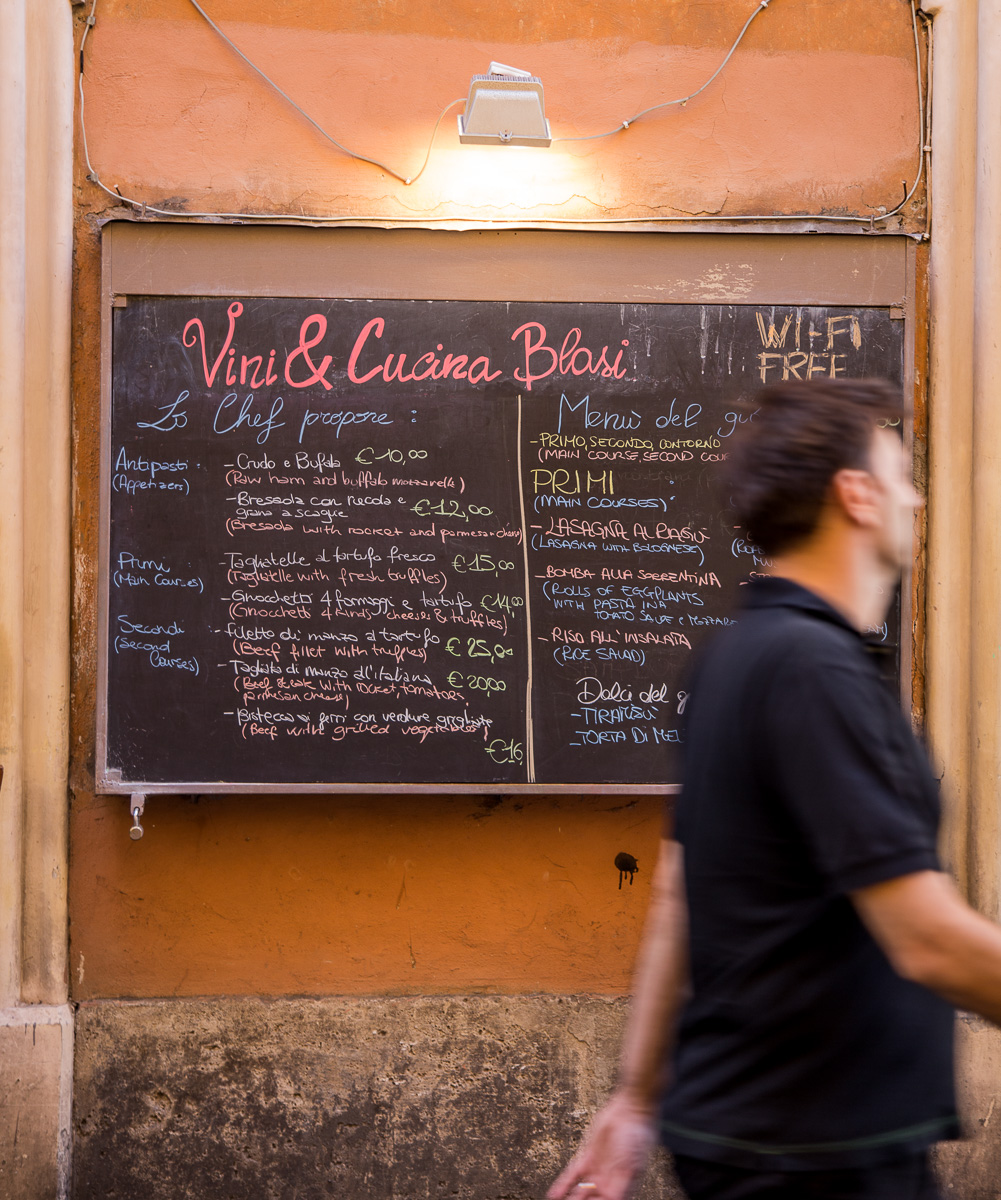 Vini & Cucina Blasi
WI-FI
FREE
Lo Chef propone :
Antipasti :
(Appetizers)
- Crudo e Bufala €10,00
(Raw ham and buffalo mozzarella)
- Bresaola con rucola e
grana a scaglie €12,00
(Bresaola with rocket and parmesan
Primi :
(Main Courses)
- Tagliatelle al tartufo fresco €15,00
(Tagliatelle with fresh truffles)
- Gnocchetti 4 formaggi e tartufo €14,00
(Gnocchetti 4 kinds cheese & truffles)
Secondi
(Second
Courses)
- Filetto di manzo al tartufo €25,00
(Beef fillet with truffles)
- Tagliata di manzo all'italiana €20,00
(Beef steak with rocket tomatoes
parmesan cheese)
- Bistecca ai ferri con verdure grigliate
(Beef with grilled vegetables)
€16,
Menù del
- PRIMO, SECONDO, CONTORNO
(MAIN COURSE, SECOND
PRIMI
(MAIN COURSES)
- LASAGNA AL
(LASAGNA WITH BOLOGNESE)
- BOMBA ALLA SORRENTINA
(ROLLS OF EGGPLANTS
WITH PASTA IN A
TOMATO SAUCE &
- RISO ALL'INSALATA
(RICE SALAD)
Dolci del
- TIRAMISÙ
- TORTA DI